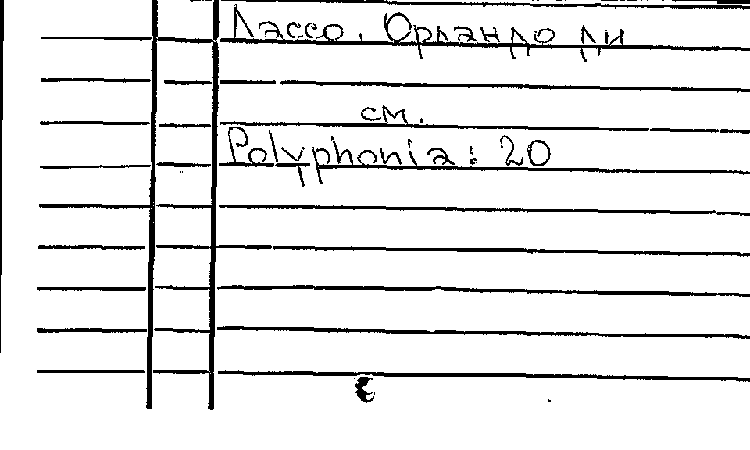 Лассо, Орландо ди
см.
Polyphonia: 20